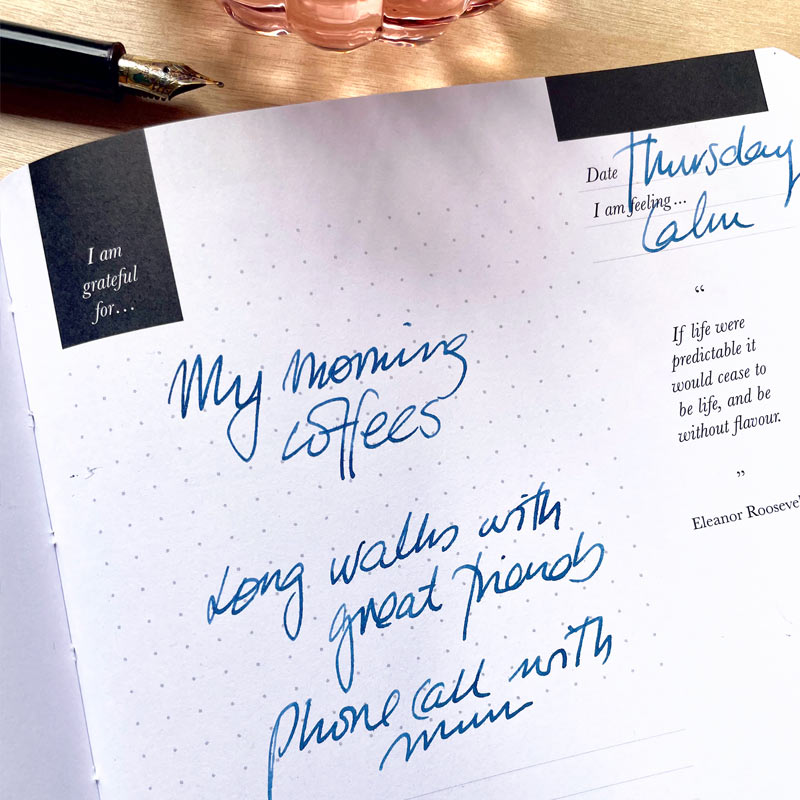 Date Thursday
I am feeling...
Calm
I am
grateful
for...
My morning
coffees
Long walks with
great friends
phone call with
mum
“
If life were
predictable it
would cease to
be life, and be
without flavour.
”
Eleanor Roosevel